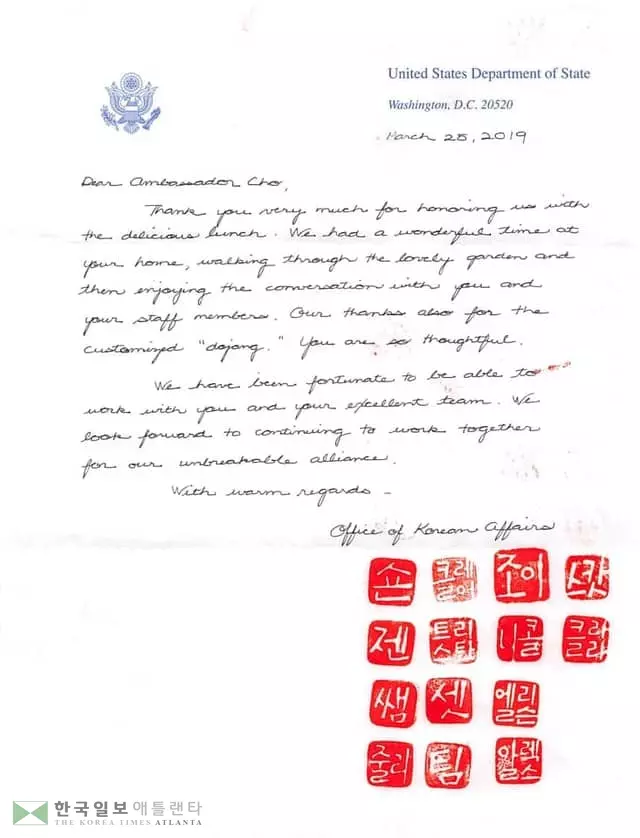 United States Department of State
Washington, D.C. 20520
March 25, 2019
Dear Ambassador Cho,
Thank you very much for honoring us with
the delicious lunch. We had a wonderful time at
your home, walking through the lovely garden and
then enjoying the conversation with you and
your staff members. Our thanks also for the
customized "dojang." You are so thoughtful.
We have been fortunate to be able to
work with you and your excellent team. We
look forward to continuing to work together
for our unbreakable alliance.
With warm regards –
Office of Korean Affairs
숀 클레어 조이 스캇
젠 트리스탄 니콜 클라라
쌤 셋 엘리슨
줄리 팀 알렉스
한국일보 애틀랜타
THE KOREA TIMES ATLANTA